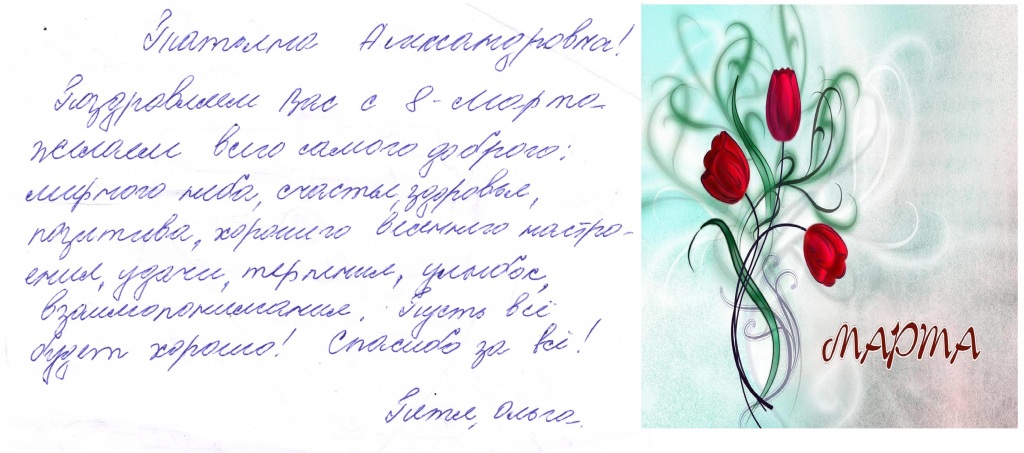 Татьяна Александровна!
Поздравляем Вас с 8-Марта
желаем всего самого доброго:
мирного неба, счастья, здоровья,
позитива, хорошего весеннего настро-
ения, удачи, терпения, улыбок,
взаимопонимания. Пусть всё
будет хорошо! Спасибо за всё!
Петя, Ольга.
МАРТА